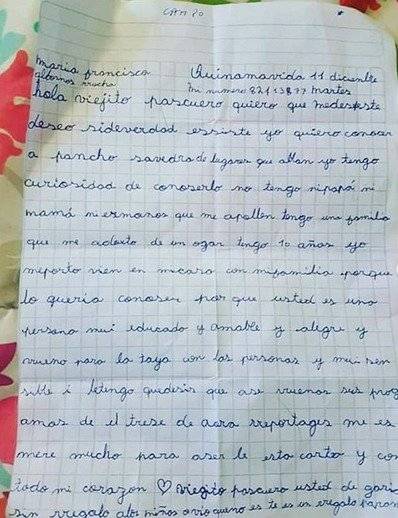 CAMPO
maria francisca Quinamavida 11 diciembre
albornos rrocha mi numero 82113877 martes
hola viejito pascuero quiero que medeseste
deseo sideverdad essiste yo quiero conocer
a pancho savedra de lugares que ablan yo tengo
curiosidad de conoserlo no tengo nipapá ni
mamá niermanos que me apollen tengo una familia
que me adoxto de un ogar tengo 10 años yo
meporto vien en micasa con mifamilia porque
lo queria conoser por que usted es una
persona mui educado y amable y alegri y
vrueno para la taya con las personas y mui sen
sible i letengo quedesir que ase vruenos sus prog
amas de el trese de acra rreportages me es
mere mucho para aser le esta carta y con
todo mi corazon ♡ viegito pascuero usted de gari
sin rregalo alos niños